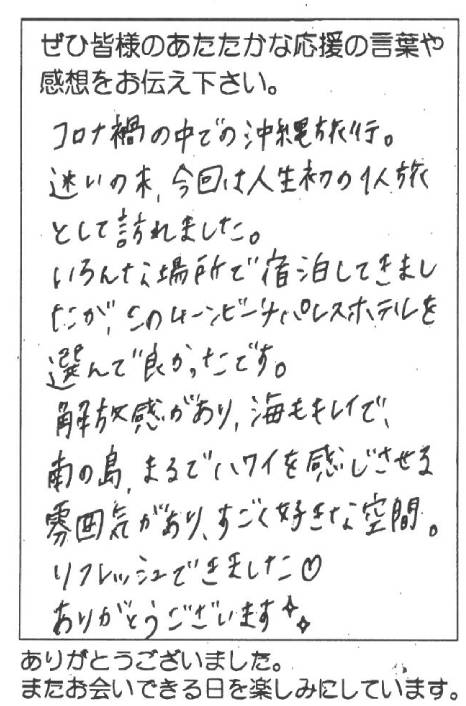 ぜひ皆様のあたたかな応援の言葉や
感想をお伝え下さい。
コロナ禍の中での沖縄旅行。
迷いの末、今回は人生初の1人旅
として訪れました。
いろんな場所で宿泊してきまし
たが、このムーンビーチパレスホテルを
選んで良かったです。
解放感があり、海もキレイで、
南の島、まるでハワイを感じさせる
雰囲気があり、すごく好きな空間。
リフレッシュできました♡
ありがとうございます✨
ありがとうございました。
またお会いできる日を楽しみにしています。